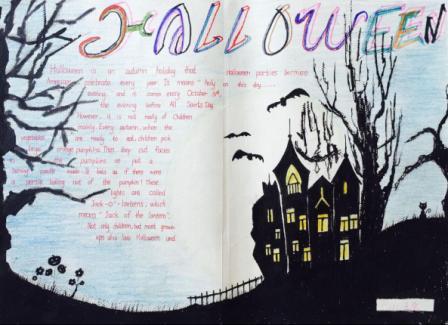 HALLOWEEN
Halloween is an autumn holiday that
Halloween parties
Americans celebrate every year. It means "holy
on this day......
evening, and it comes every October 31st,
the evening before All Saints' Day.
However, it is not really of
mainly. Every autumn, when the
vegetables are ready to eat, children pick
large orange pumpkins. Then they cut faces
in the pumpkins and put a
burning candle inside. It looks as if there were
a person looking out of the pumpkin! These
lights are called
Jack-o'-lanterns, which
means "Jack of the lantern".
Not only children, but most grown-
ups also love Halloween and